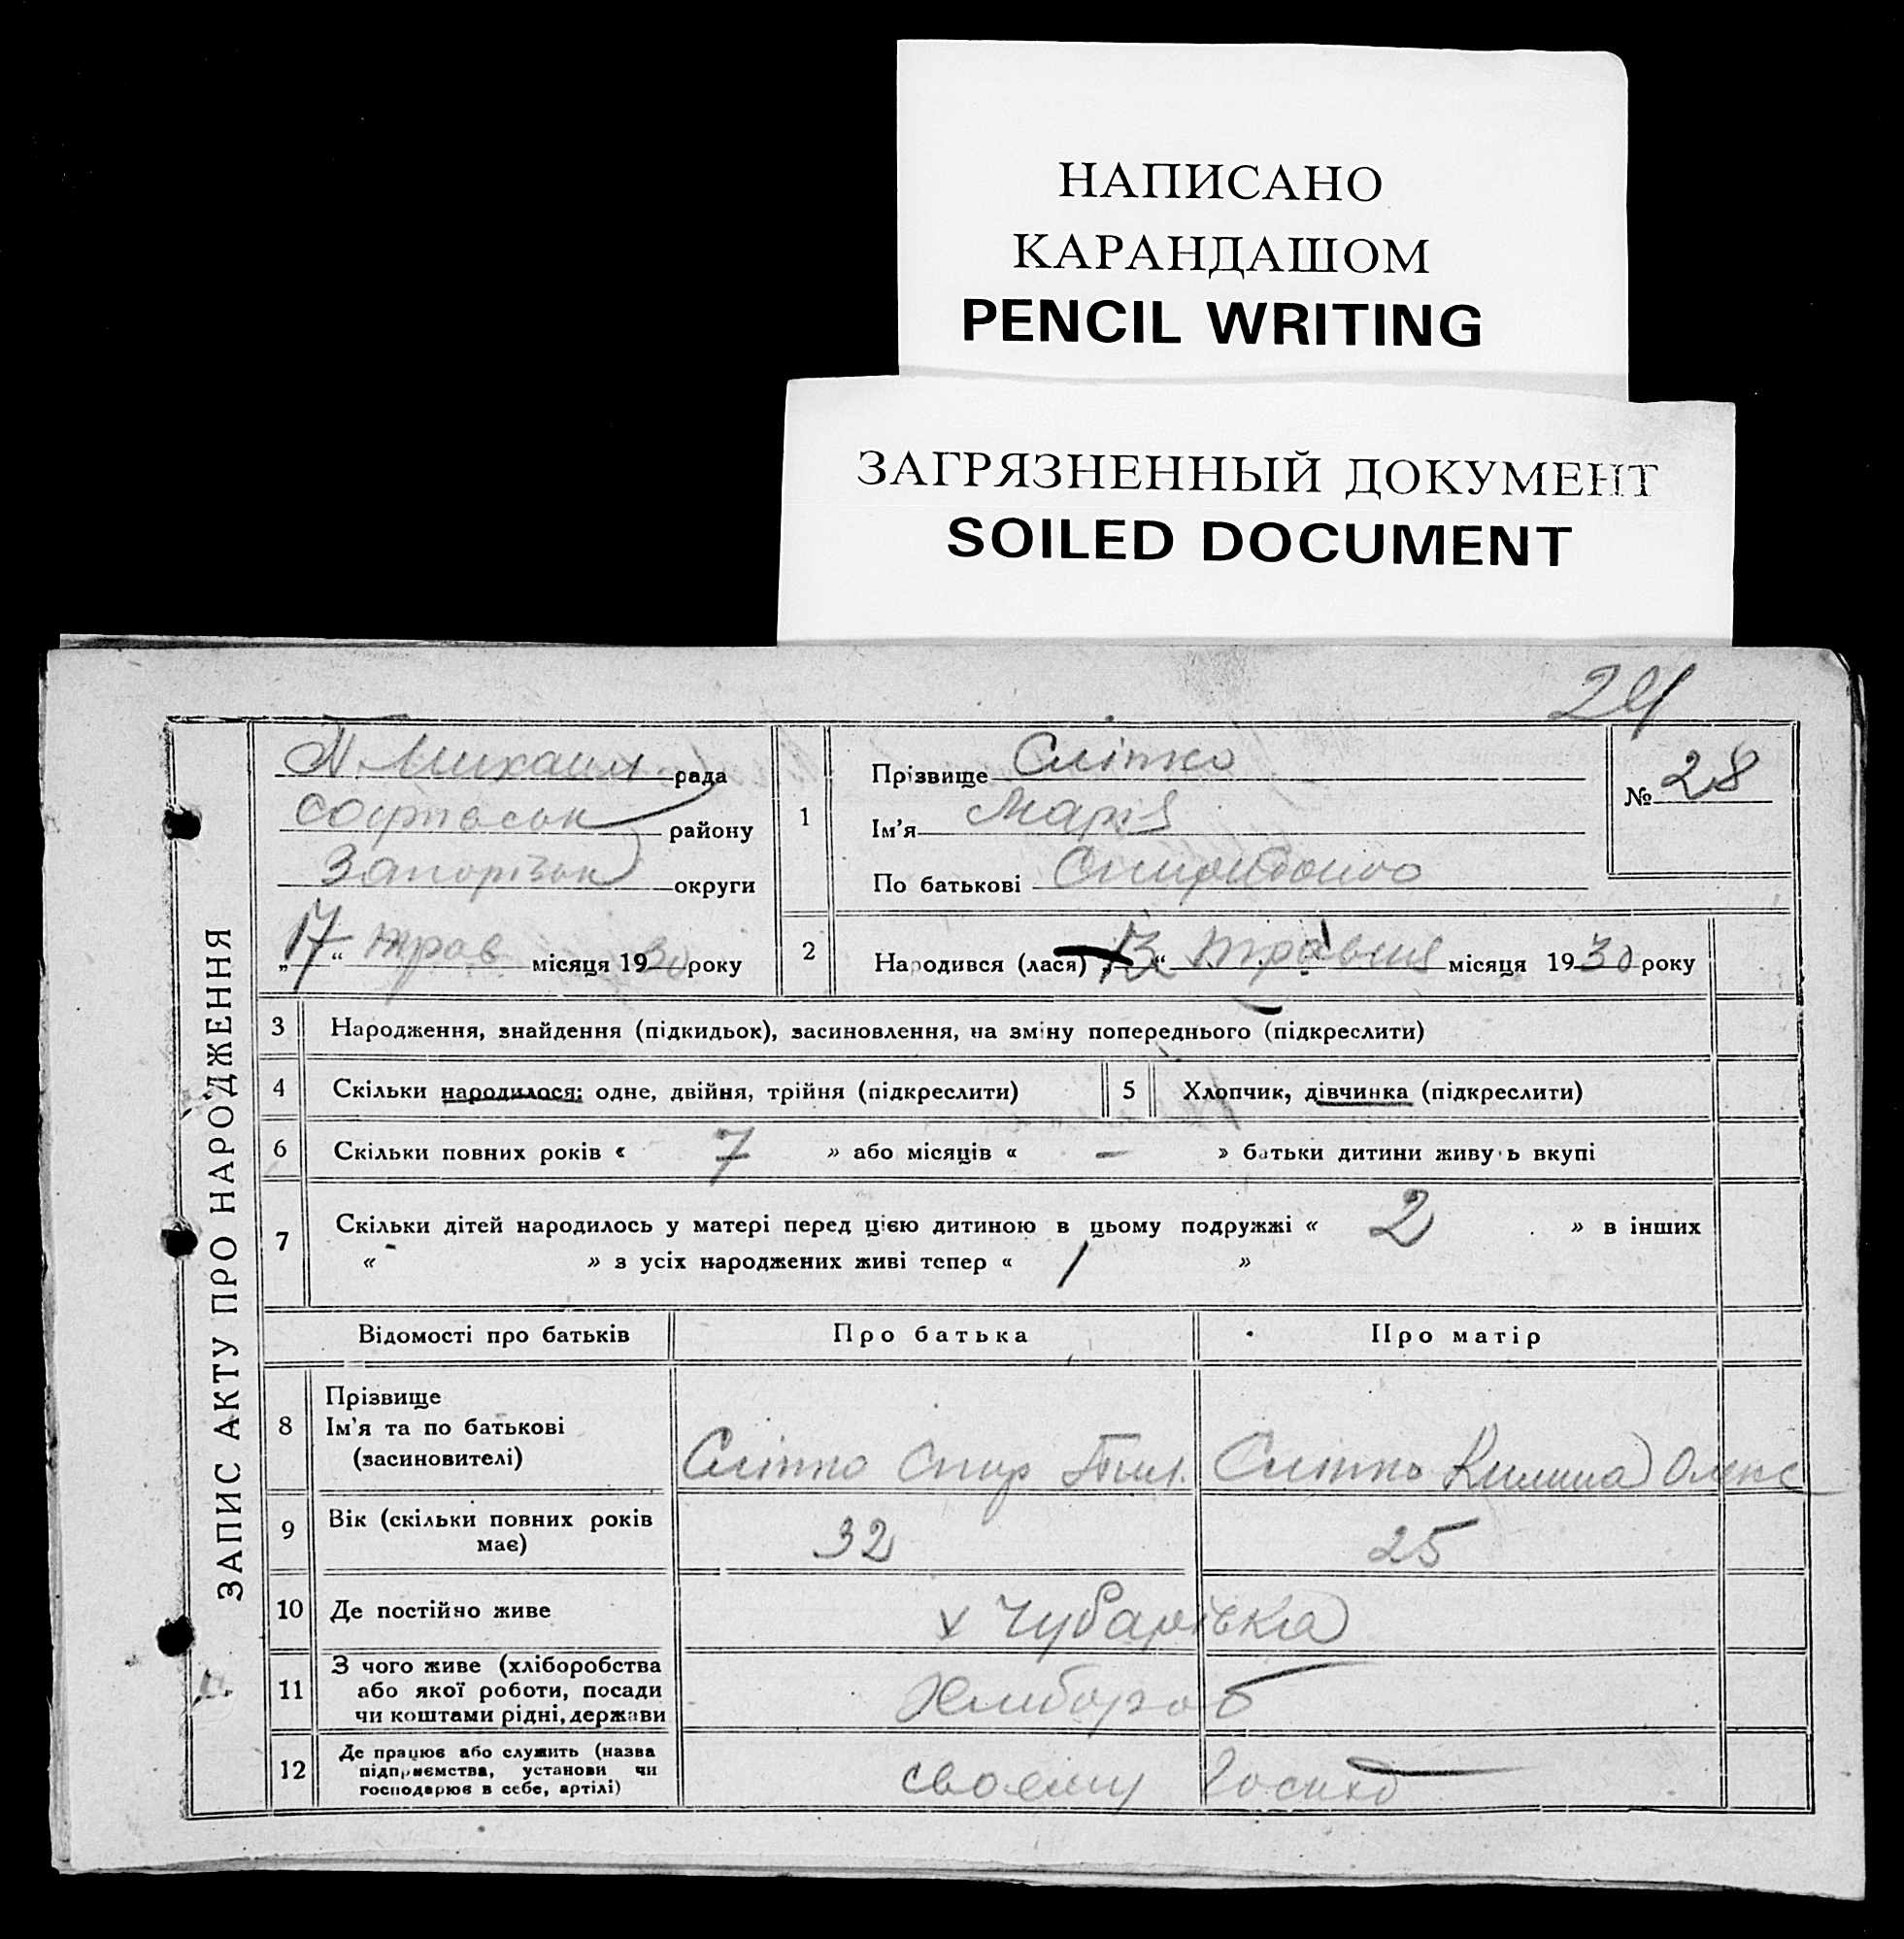 НАПИСАНО
КАРАНДАШОМ
PENCIL WRITING
ЗАГРЯЗНЕННЫЙ ДОКУМЕНТ
SOILED DOCUMENT
ЗАПИС АКТУ ПРО НАРОДЖЕННЯ
Н. Михаил рада
Софіевськ району
Запорізьк округи
„17“ трав місяця 1930 року
1 Прізвище Сліпко
Ім'я Марія
По батькові Спиридоно
№ 28
2 Народився (лася) „13“ травня місяця 1930 року
3 Народження, знайдення (підкидьок), засиновлення, на зміну попереднього (підкреслити)
4 Скільки народилося: одне, двійня, трійня (підкреслити) 5 Хлопчик, дівчинка (підкреслити)
6 Скільки повних років « 7 » або місяців « – » батьки дитини живуть вкупі
7 Скільки дітей народилось у матері перед цією дитиною в цьому подружжі « 2 » в інших
« - » з усіх народжених живі тепер « 1 »
Відомості про батьків Про батька Про матір
8 Прізвище
Ім'я та по батькові
(засиновителі) Сліпко Спир Сліпко Килина Олекс
9 Вік (скільки повних років
має) 32 25
10 Де постійно живе х Чубарівка
11 З чого живе (хліборобства
або якої роботи, посади
чи коштами рідні, держави Хлибороб
12 Де працює або служить (назва
підприємства, установи чи
господарює в себе, артілі) своему Господ